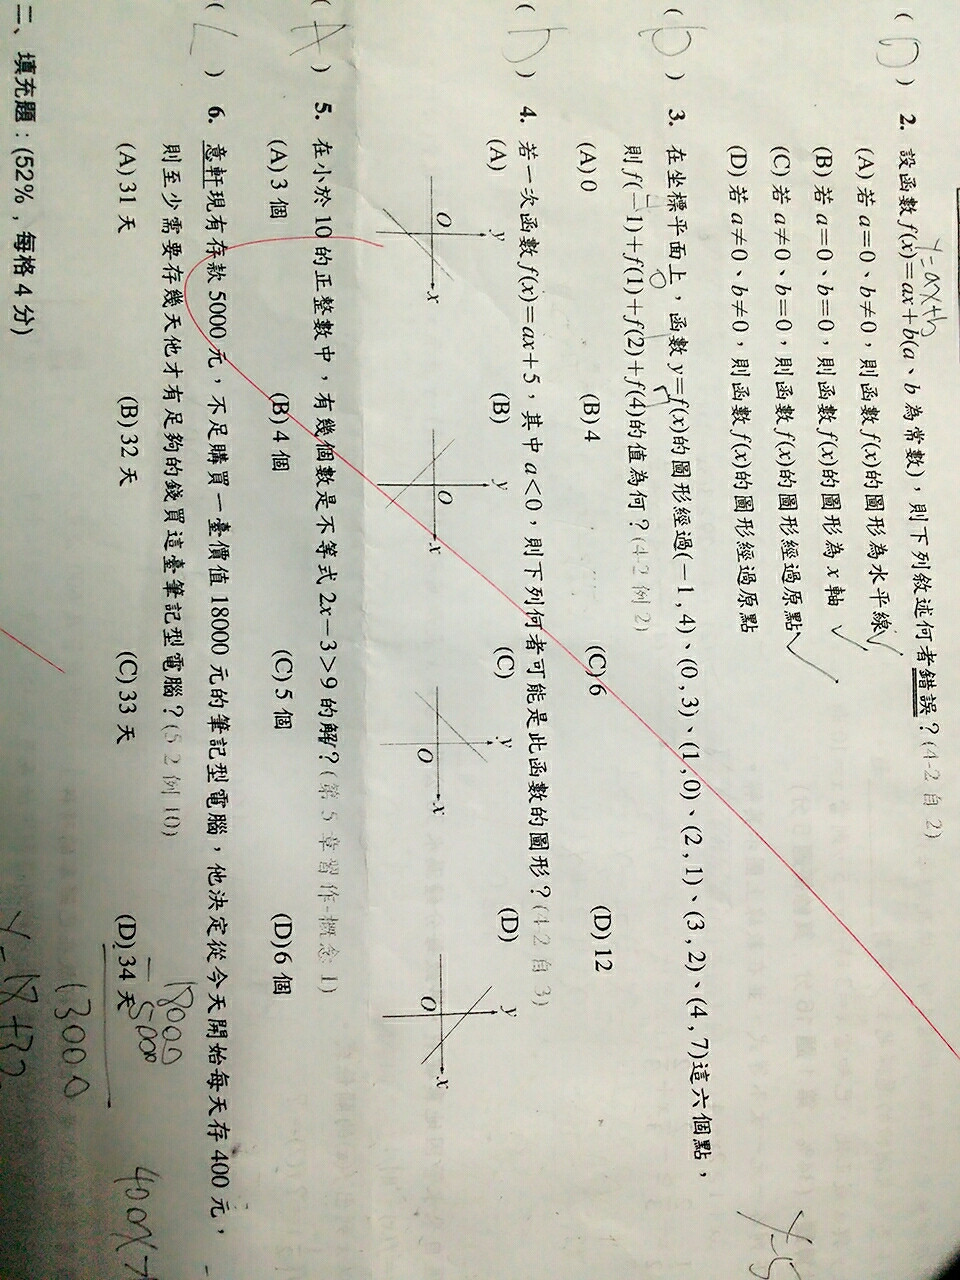 y=ax+b
( D ) 2. 設函數 f(x)=ax+b(a、b 為常數),則下列敘述何者錯誤?(4-2 自 2)
(A) 若 a=0、b≠0,則函數 f(x)的圖形為水平線
(B) 若 a=0、b=0,則函數 f(x)的圖形為 x 軸
(C) 若 a≠0、b=0,則函數 f(x)的圖形經過原點
(D) 若 a≠0、b≠0,則函數 f(x)的圖形經過原點
( D ) 3. 在坐標平面上,函數 y=f(x)的圖形經過(-1,4)、(0,3)、(1,0)、(2,1)、(3,2)、(4,7)這六個點,
則 f(-1)+f(1)+f(2)+f(4)的值為何?(4-2 例 2)
(A) 0 (B) 4 (C) 6 (D) 12
( D ) 4. 若一次函數 f(x)=ax+5,其中 a<0,則下列何者可能是此函數的圖形?(4-2 自 3)
(A) (B) (C) (D)
y y y y
O x O x O x O x
( A ) 5. 在小於 10 的正整數中,有幾個數是不等式 2x-3>9 的解?(第 5 章習作-概念 1)
(A) 3 個 (B) 4 個 (C) 5 個 (D) 6 個
( C ) 6. 意軒現有存款 5000 元,不足購買一臺價值 18000 元的筆記型電腦,他決定從今天開始每天存 400 元,
則至少需要存幾天他才有足夠的錢買這臺筆記型電腦?(5-2 例 10)
(A) 31 天 (B) 32 天 (C) 33 天 (D) 34 天
18000
- 5000
13000
二、填充題:(52%,每格 4 分)